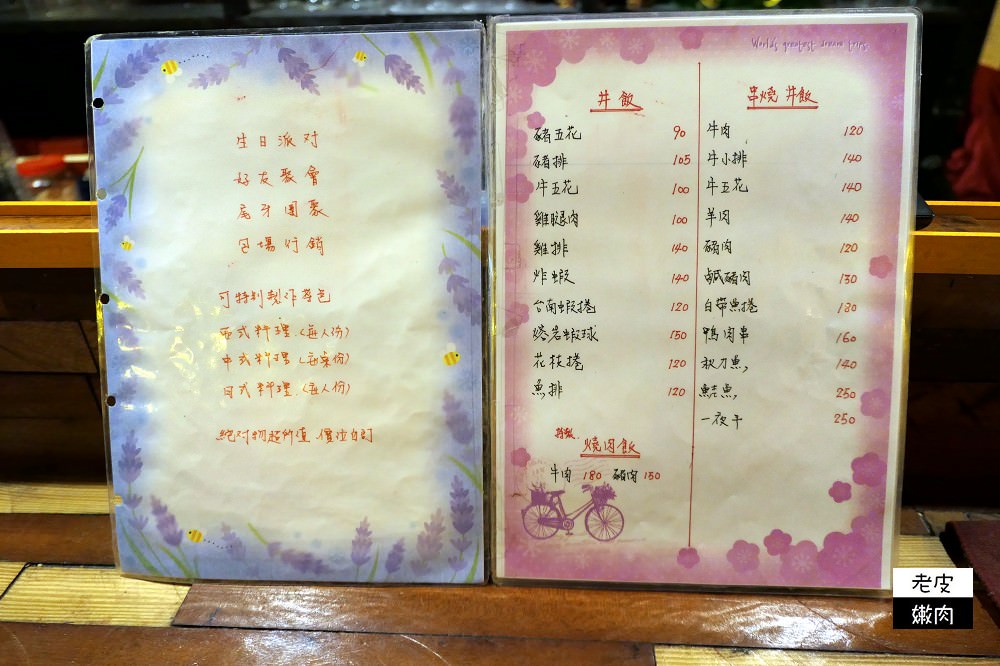 生日派对
好友聚會
尾牙團聚
包場行銷
可特別製作菜色
西式料理(每人份)
中式料理(每桌份)
日式料理(每人份)
絕对物超所值 價位自訂
World's greatest dream trips
丼飯
豬五花 90
豬排 105
牛五花 100
雞腿肉 100
雞排 140
炸蝦 140
台南蝦捲 120
塔香蝦球 150
花枝捲 120
魚排 120
特級 燒肉飯
牛肉 180 豬肉 150
串燒 丼飯
牛肉 120
牛小排 140
牛五花 140
羊肉 140
豬肉 120
鹹豬肉 130
白帶魚捲 180
鴨肉串 160
秋刀魚 140
鮭魚 250
一夜干 250
老皮
嫩肉